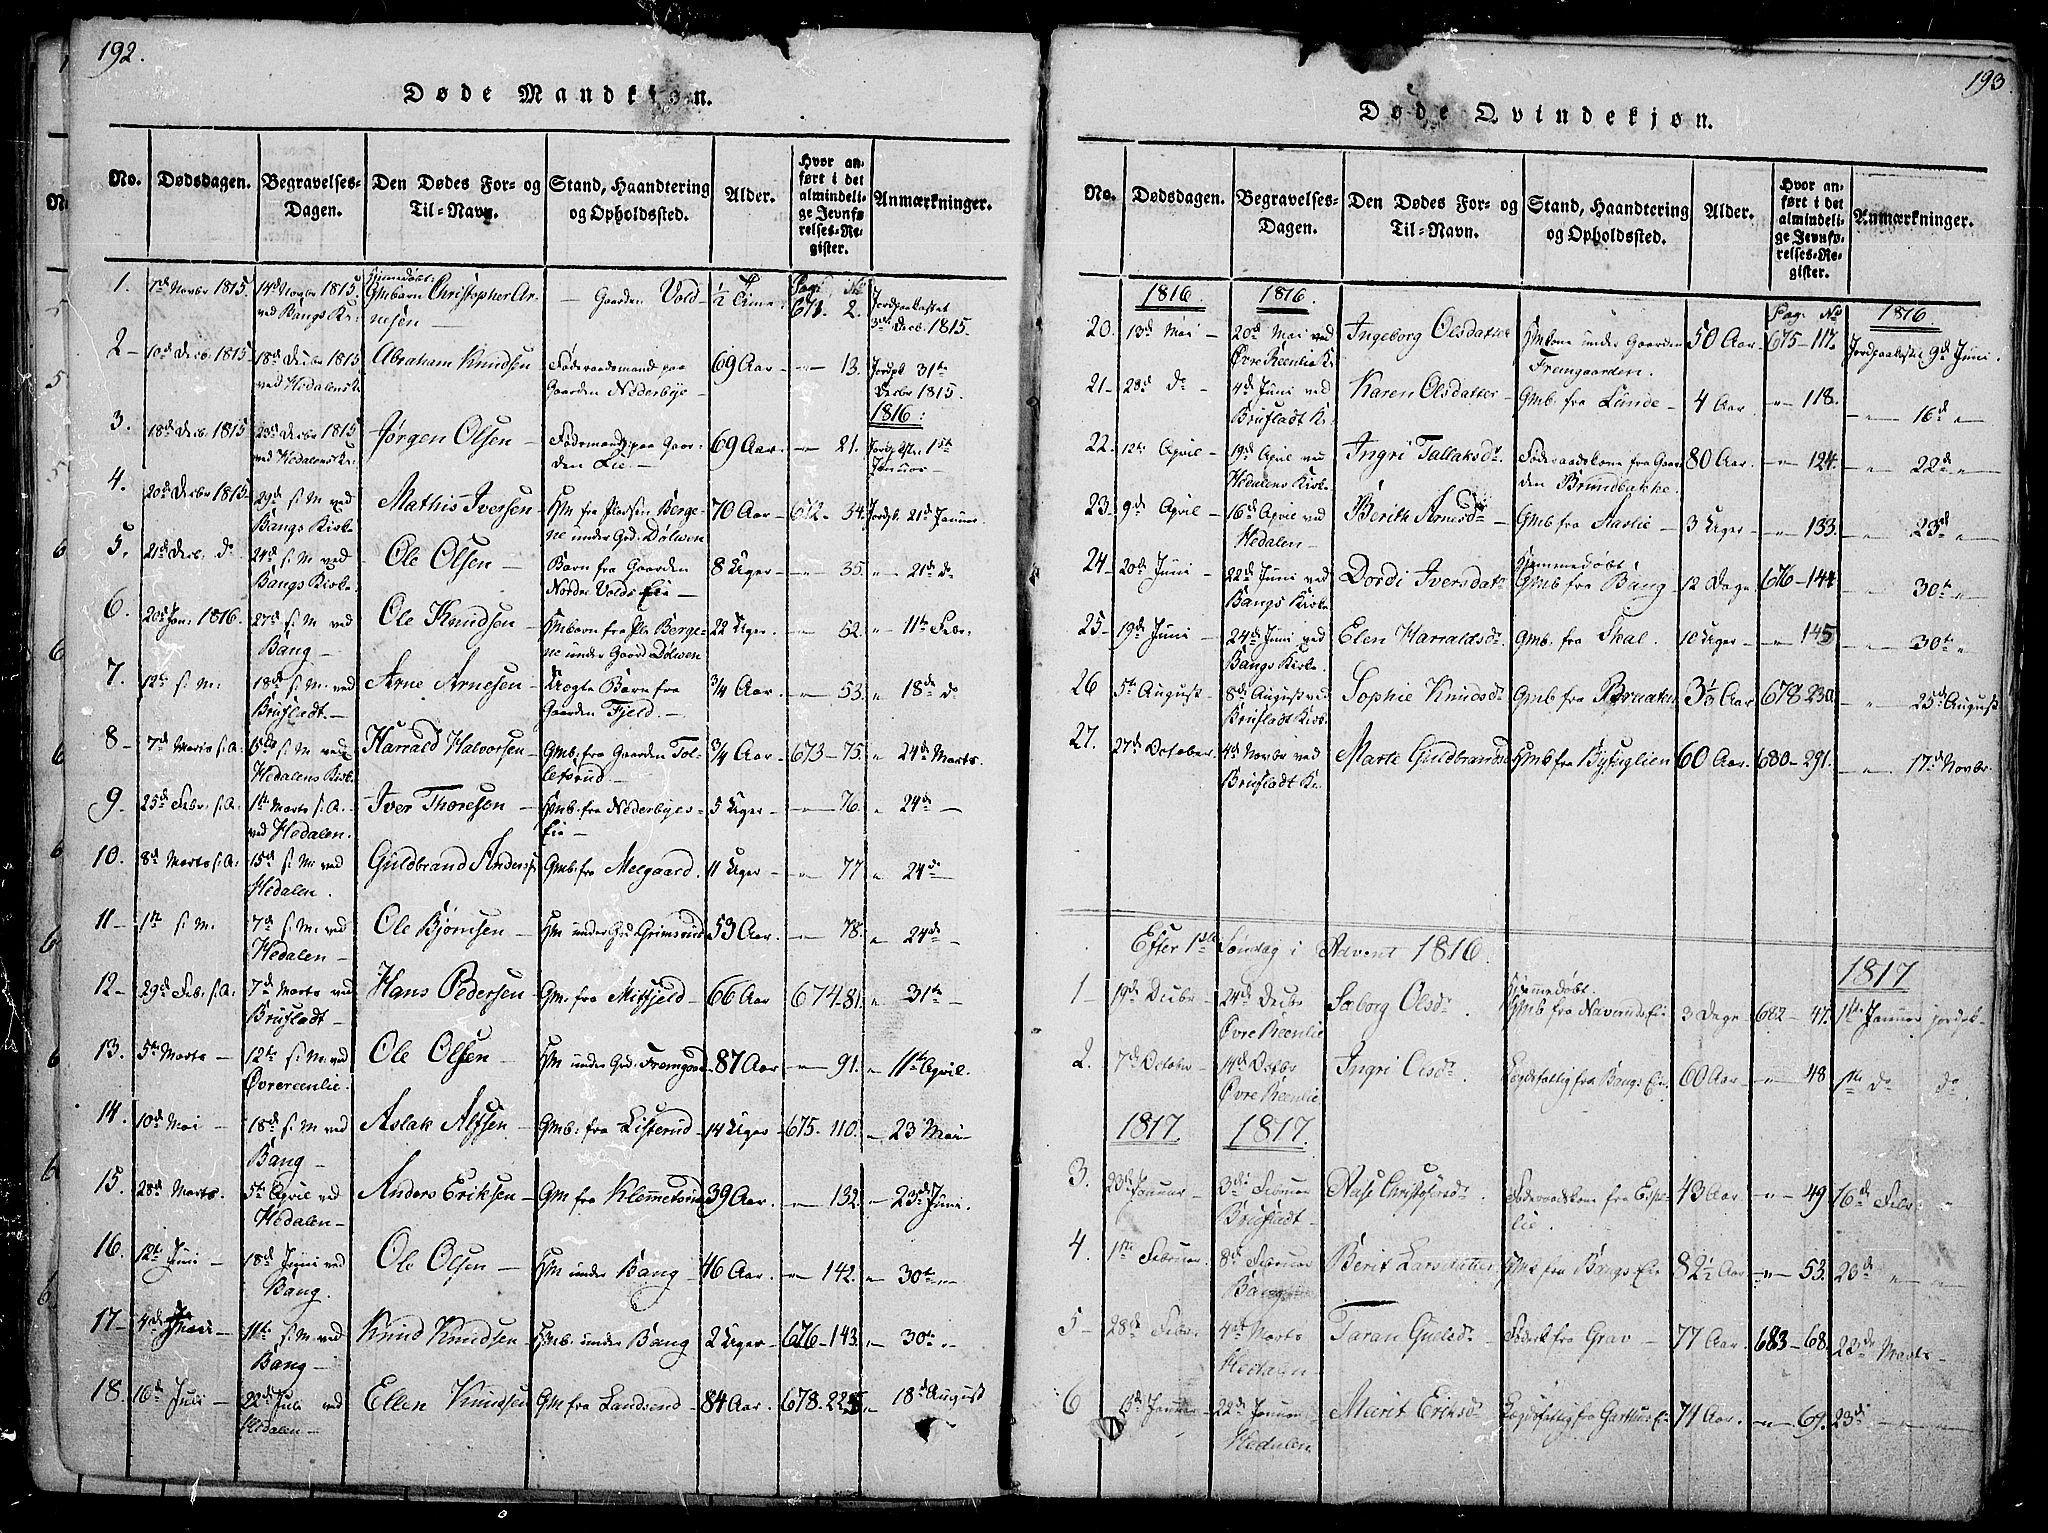 192.
Døde Mandkjøn.
No. Dødsdagen. Begravelses-Dagen. Den Dødes For- og Til-Navn. Stand, Haandtering og Opholdssted. Alder. Hvor anført i det almindelige Jevnførelses-Register. Anmærkninger.
1. 7de Novbr 1815. 14de Novbr 1815. ved Bangs K. Hjemdøbt. Gmbarn Christopher Arnesen — Gaarden Vold — 1/2 Time Pag: 671. No 2. Jordpaakastet 3die Decb. 1815.
2 — 10de Decb. 1815 18de Decbr 1815 ved Hedalens K. Abraham Knudsen Føderaadsmand paa Gaarden Nederbye — 69 Aar — " — 13. Jordpk. 31te Decbr 1815.
1816:
3. 18de Decb. 1815 23de Decbr 1815 ved Hedalens K. Jørgen Olsen — Fødsmand paa Gaarden Lie — 69 Aar. — " — 21. 1ste Januar —
4. 20de Decbr 1815. 29de s: M ved Bangs Kirke Mathis Iversen Hm fra Pladsen Bergene under Grd. Dølven 70 Aar — 672 — 34. Jordpk. 21de Januar.
5. 21de Decb. do 24de s: M ved Bangs Kirke. Ole Olsen — Barn fra Gaarden Nordre Volds Eie — 8 Uger — " — 35. " 21de do
6. 20de Jan: 1816. 27de s: M ved Bang — Ole Knudsen — Hmbarn fra Pl: Bergene under Gaard Dølven 22 Uger — " — 52. " 11te Febr.
7. 12te s: M: 18de s: M. ved Brufladt. — Arne Arnesen — Uægte Barn fra Gaarden Fjeld. — 3/4 Aar. — " — 53. " 18de do
8 — 7de Marts s: A: s: M ved Hedalens Kirk. Harrald Halvorsen Gmb. fra Gaarden Tollefsrud — 3/4 Aar — 673 — 75. " 24de Marts.
9. 25de Febr. s: A. 1ste Marts s: A. ved Hedalen. Iver Thoresen — Hmb. fra Nederbyes Eie — 5 Uger — " — 76. " 24de —
10. 8de Marts s: A: 15de s: M. ved Hedalen. Guldbrand Anders: Gmb. fra Melgaard. 11 Uger — " — 77 " 24de —
11 — 1ste s: M. 7de s: M. ved Hedalen — Ole Bjørnsen — Hm under Grd Grimsrud 53 Aar. — " — 78. " 24de —
12 — 29de Feb. s: A: 7de Marts ved Brufladt — Hans Pedersen Gm. fra Midfjeld — 66 Aar 674 81. " 31te —
13. 5te Marts — 12te s: M. ved Øvrereenlie. Ole Olsen — Hm under Grd. Fremgrd — 87 Aar — " — 91. " 11te April.
14. 10de Mai — 18de s: M ved Bang — Aslak Alfsen — Gmb. fra Listerud — 14 Uger — 675. 110. " 23 Mai —
15. 28de Marts. 5te April ved Hedalen — Anders Eriksen — Gm fra Klemmetsrud 39 Aar. — " — 132. " 23de Juni.
16. 12te Juni — 18de Juni ved Bang. Ole Olsen — Hm under Bang — 46 Aar. — " — 142. " 30te — " —
17 — 4de Juni — 11te s: M ved Bang — Knud Knudsen Hmb. under Bang 2 Uger — 676 — 143. " 30te "
18. 16de Juli — 22de Juli ved Hedalen — Ellen Knudsen Gm fra Landsend — 84 Aar. 678. 225 " 18de August
193.
Døde Qvindekjøn.
No. Dødsdagen. Begravelses-Dagen. Den Dødes For- og Til-Navn. Stand, Haandtering og Opholdssted. Alder. Hvor anført i det almindelige Jevnførelses-Register. Anmærkninger.
1816. 1816. Pag: No 1816.
20. 13de Mai — 20de Mai ved Øvre Reenlie K. Ingeborg Olsdatter Hmkone under Gaarden Fremgaarden. 50 Aar — 675 — 117. Jordpaakastet 9de Juni.
21 — 28de do — 4de Juni ved Bruflads K. Karen Olsdatter — Gmb. fra Lunde — 4 Aar. — " — 118. — " — 16de "
22. 12te April — 19de April ved Hedalens Kirke Ingri Tallaksdr. Føderaadskone fra Gaarden Brundbakke. 80 Aar. — " — 124. — " — 22de "
23. 9de April — 16de April ved Hedalen — Berith Arnesdr — Gmb fra Aaslie — 3 Uger — " — 133. — " — 23de "
24 — 20de Juni — 22de Juni ved Bangs Kirke Dordi Iversdatr Hjemmedøbt Gmb fra Bang — 12 Dage 676 — 144 — " — 30te "
25 — 19de Juni — 24de Juni ved Bangs Kirke. Elen Harraldsdr. Gmb. fra Skal. 10 Uger — " — 145 — " — 30te "
26 5te August — 8de August ved Bruflads Kirke Sophie Knudsdr Gmb fra Braaten 3 1/2 Aar 678 — 230. — " — 25de August
27. 27de October. 4de Novbr ved Bruflads K. Marte Guldbrandsd. Hmb fra Byfuglien 60 Aar. 680 — 291. — " — 17de Novbr.
Efter 1ste Søndag i Advent 1816.
1817
1 — 19de Decbr — 24de Decbr Øvre Reenlie Sæborg Olsdr. Hjemmedøbt. Hmb fra Naveruds Eie 3 Dage 682 — 47. 1ste Januar jordpk.
2. 7de October 14de Octbr Øvre Reenlie Ingri Olsdr. Lægdsfattig fra Bangs Eie. 60 Aar — " — 48 1ste do do
1817. 1817.
3. 23de Januar — 3die Februar Bruflads — Aase Christofersdr. Føderaadskone fra Espelie. 43 Aar — " — 49 16de Febr.
4. 1ste Februar. 8de Februar Bang Berit Larsdatter fra Bangs Eie 82 1/2 Aar — " — 53. 23de " "
5 — 28de Febr. 4de Marts Hedalen — Taran Gulsdr — Føderk fra Grav — 77 Aar. 683 — 68. 23de Marts —
6 13de Januar 22de Januar Hedalen Marit Eriksdr Lægdsfattig fra Garthus Eie 71 Aar. — " — 69. 23de — " —